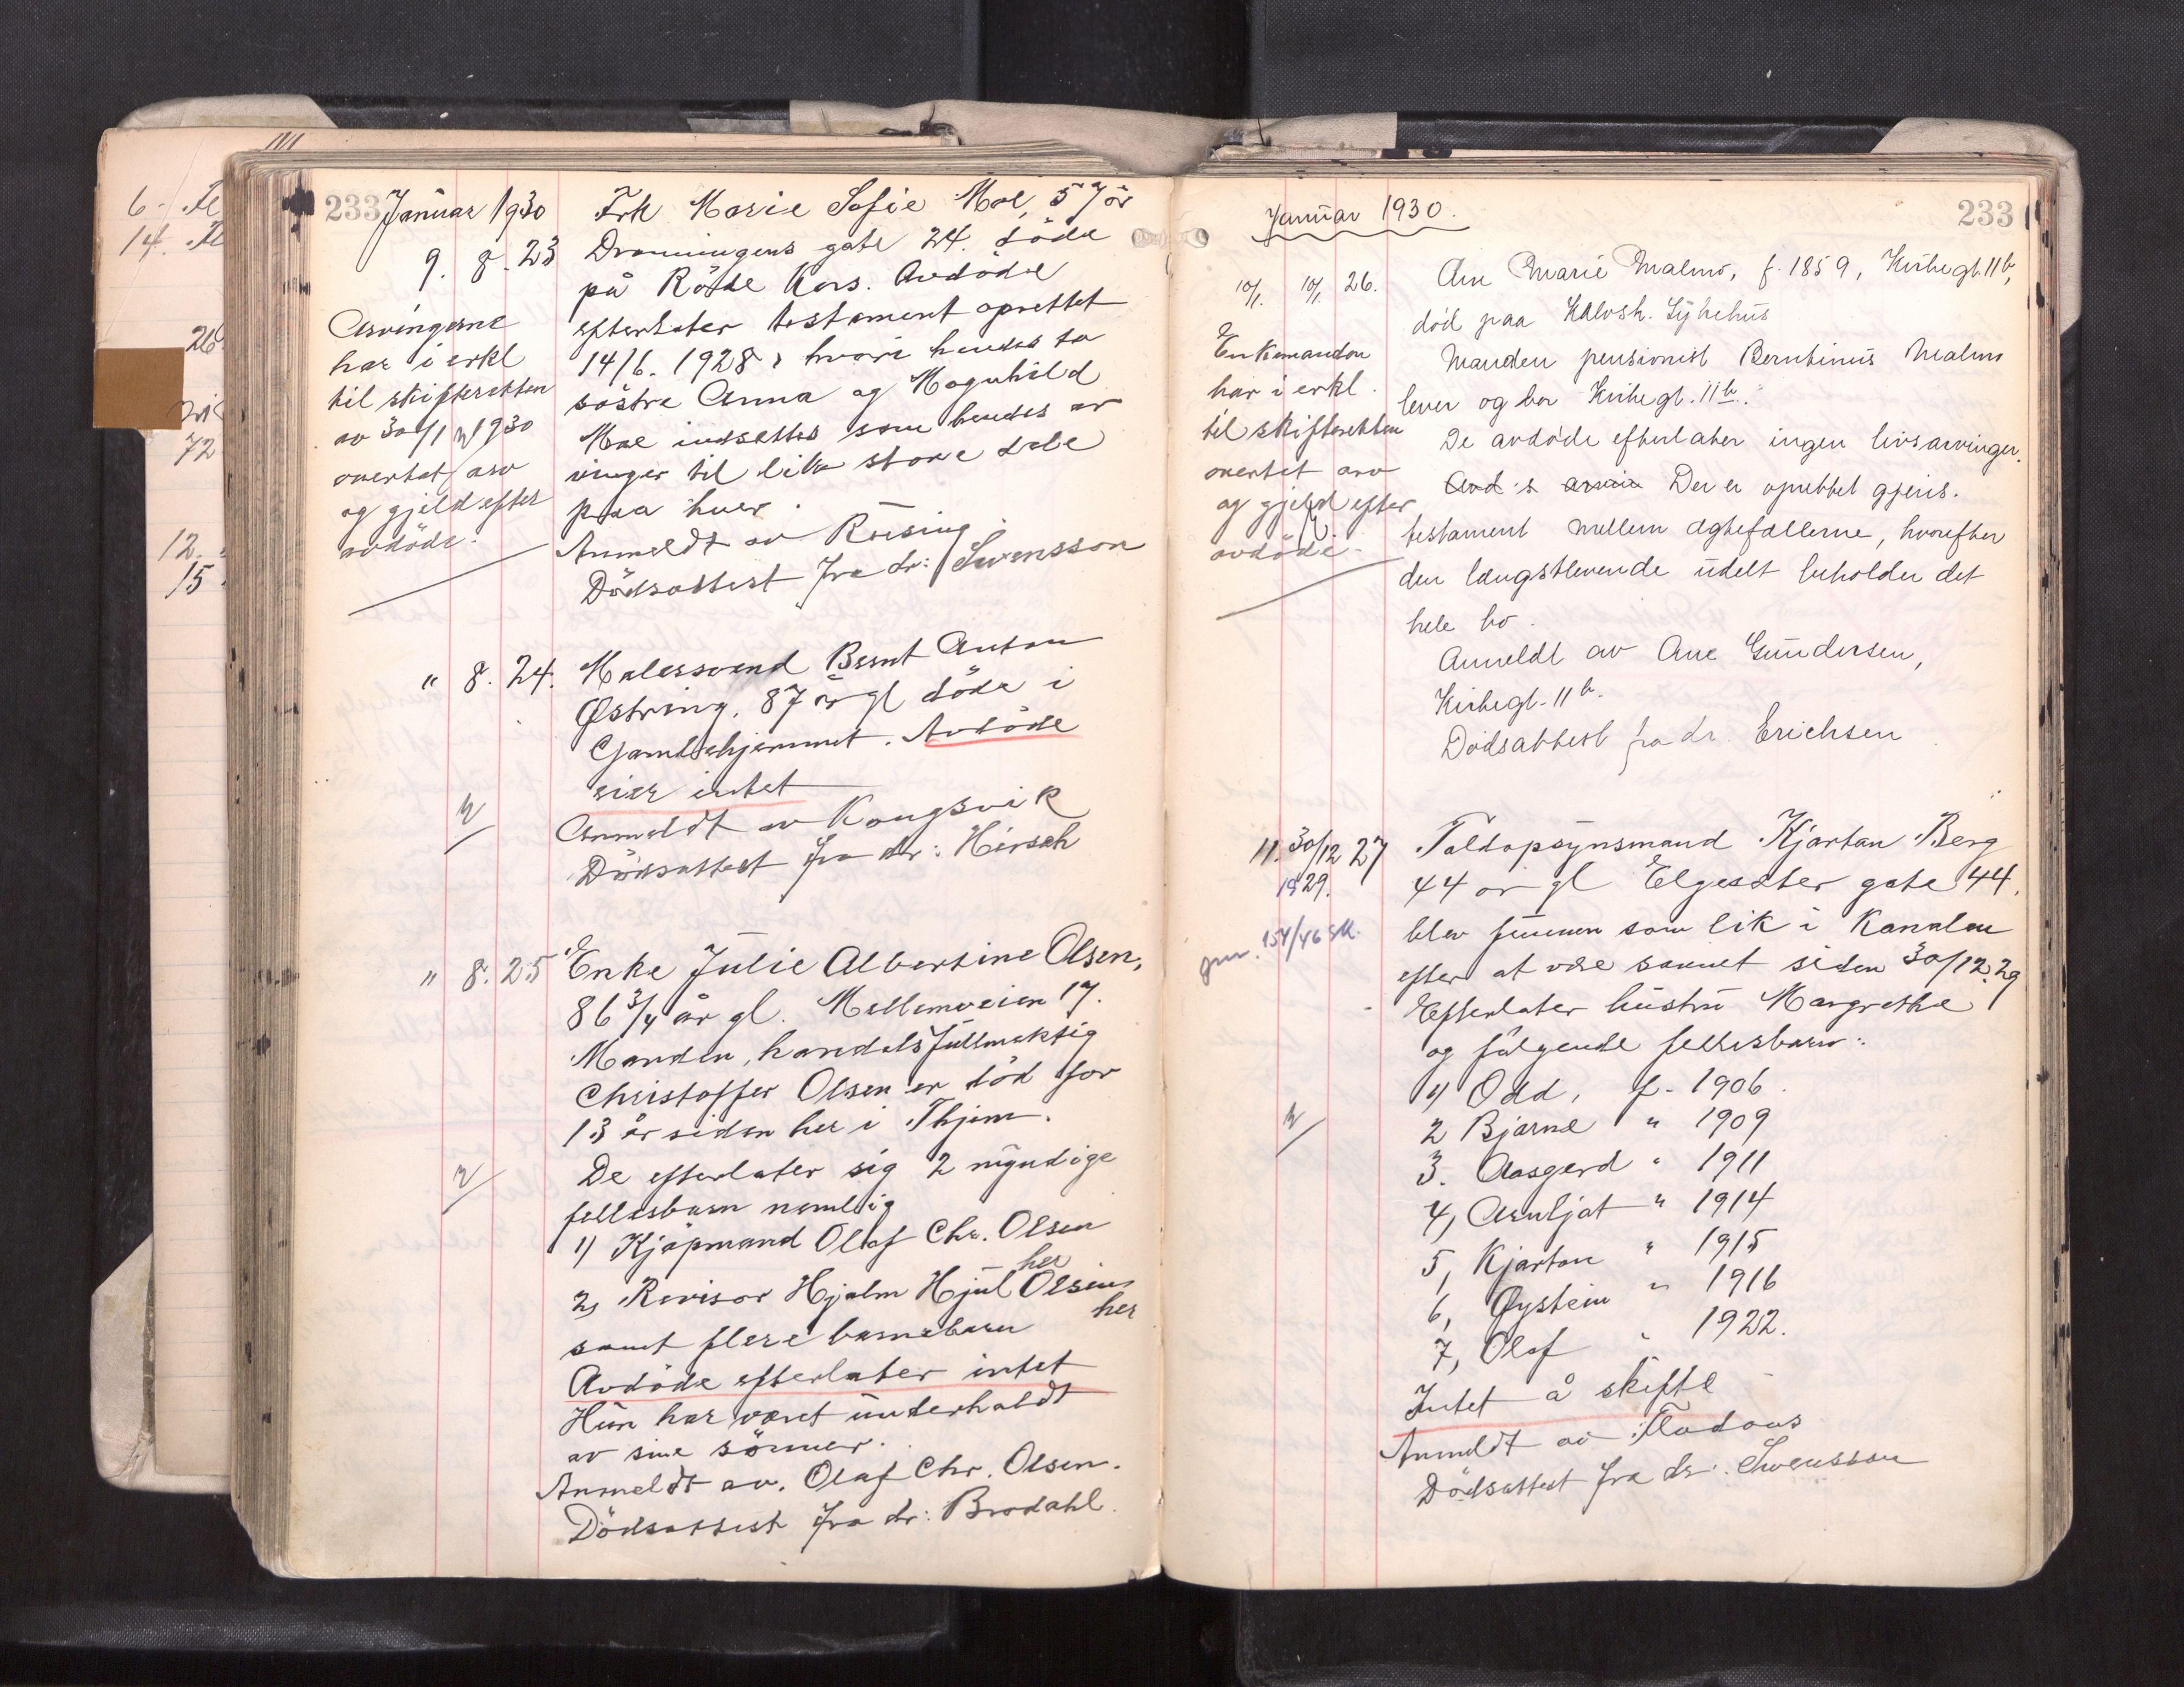 6 -
14.
26.
72
12.
15
233 Januar 1930
9. 8. 23 Frk Marie Sofie Moe, 57 år
Dronningens gate 24. döde
på Röde Kors. Avdöde
efterlater testament oprettet
14/6. 1928, hvori hendes to
söstre Anna og Magnhild
Moe indsettes som hendes ar
vinger til like store dele
paa hver.
Anmeldt av Rüsing
Dödsattest fra dr: Svensson
Arvingerne
har i erkl
til skifteretten
av 30/1 1930
overtat arv
og gjeld efter
avdöde.
" 8. 24. Malersvend Bernt Anton
Østring, 87 år gl döde i
Gamlehjemmet. Avdöde
eier intet
Anmeldt av Kongsvik
Dödsattest fra dr: Hirsch
" 8. 25 Enke Julie Albertine Olsen,
86 3/4 år gl. Mellemveien 17.
Manden, handelsfullmektig
Christoffer Olsen er död for
13 år siden her i Thjem.
De efterlater sig 2 myndige
fellesbarn nemlig
1) Kjöpmand Olaf Chr. Olsen
her
2, Revisor Hjalm Hjul Olsen
her
samt flere barnebarn
Avdöde efterlater intet
Hun har været underholdt
av sine sönner.
Anmeldt av. Olaf Chr. Olsen.
Dödsattest fra dr: Brodahl.
Januar 1930.
233
10/1. 10/1. 26. Ane Marie Malmo, f. 1859, Kirkegt. 11b,
död paa Kalvsk. Sykehus
Manden pensionist Berntinus Malmo
lever og bor Kirkegt. 11b.
De avdöde efterlater ingen livsarvinger.
Avd's Der er oprettet gjens.
testament mellem ægtefællerne, hvorefter
den længstlevende udelt beholder det
hele bo.
Anmeldt av Ane Gundersen,
Kirkegt. 11b.
Dödsattest fra dr. Erichsen
Enkemanden
har i erkl.
til skifteretten
overtat arv
og gjeld efter
avdöde.
11. 30/12 27 Toldopsynsmand Kjartan Berg
1929. 44 år gl Elgeseter gate 44.
blev funnen som lik i Kanalen
gm. 154/46 sk.
efter at være savnet siden 30/12 29
Efterlater hustru Margrethe
og følgende fellesbarn:
1) Odd, f. 1906.
2 Bjarne " 1909
3. Aasgerd " 1911
4, Arnljot " 1914
5, Kjartan " 1915
6, Øystein " 1916
7, Olaf " 1922.
Intet å skifte
Anmeldt av Flodaas
Dödsattest fra dr. Svensson